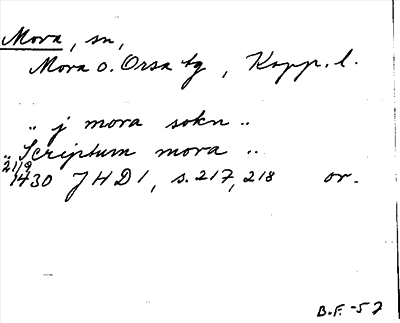 Mora, sn,
Mora o. Orsa tg, Kopp. l.
.. j mora sokn ..
.. Scriptum mora ..
21/9
1430 JHD 1, s. 217, 218 or.
B.F. -52